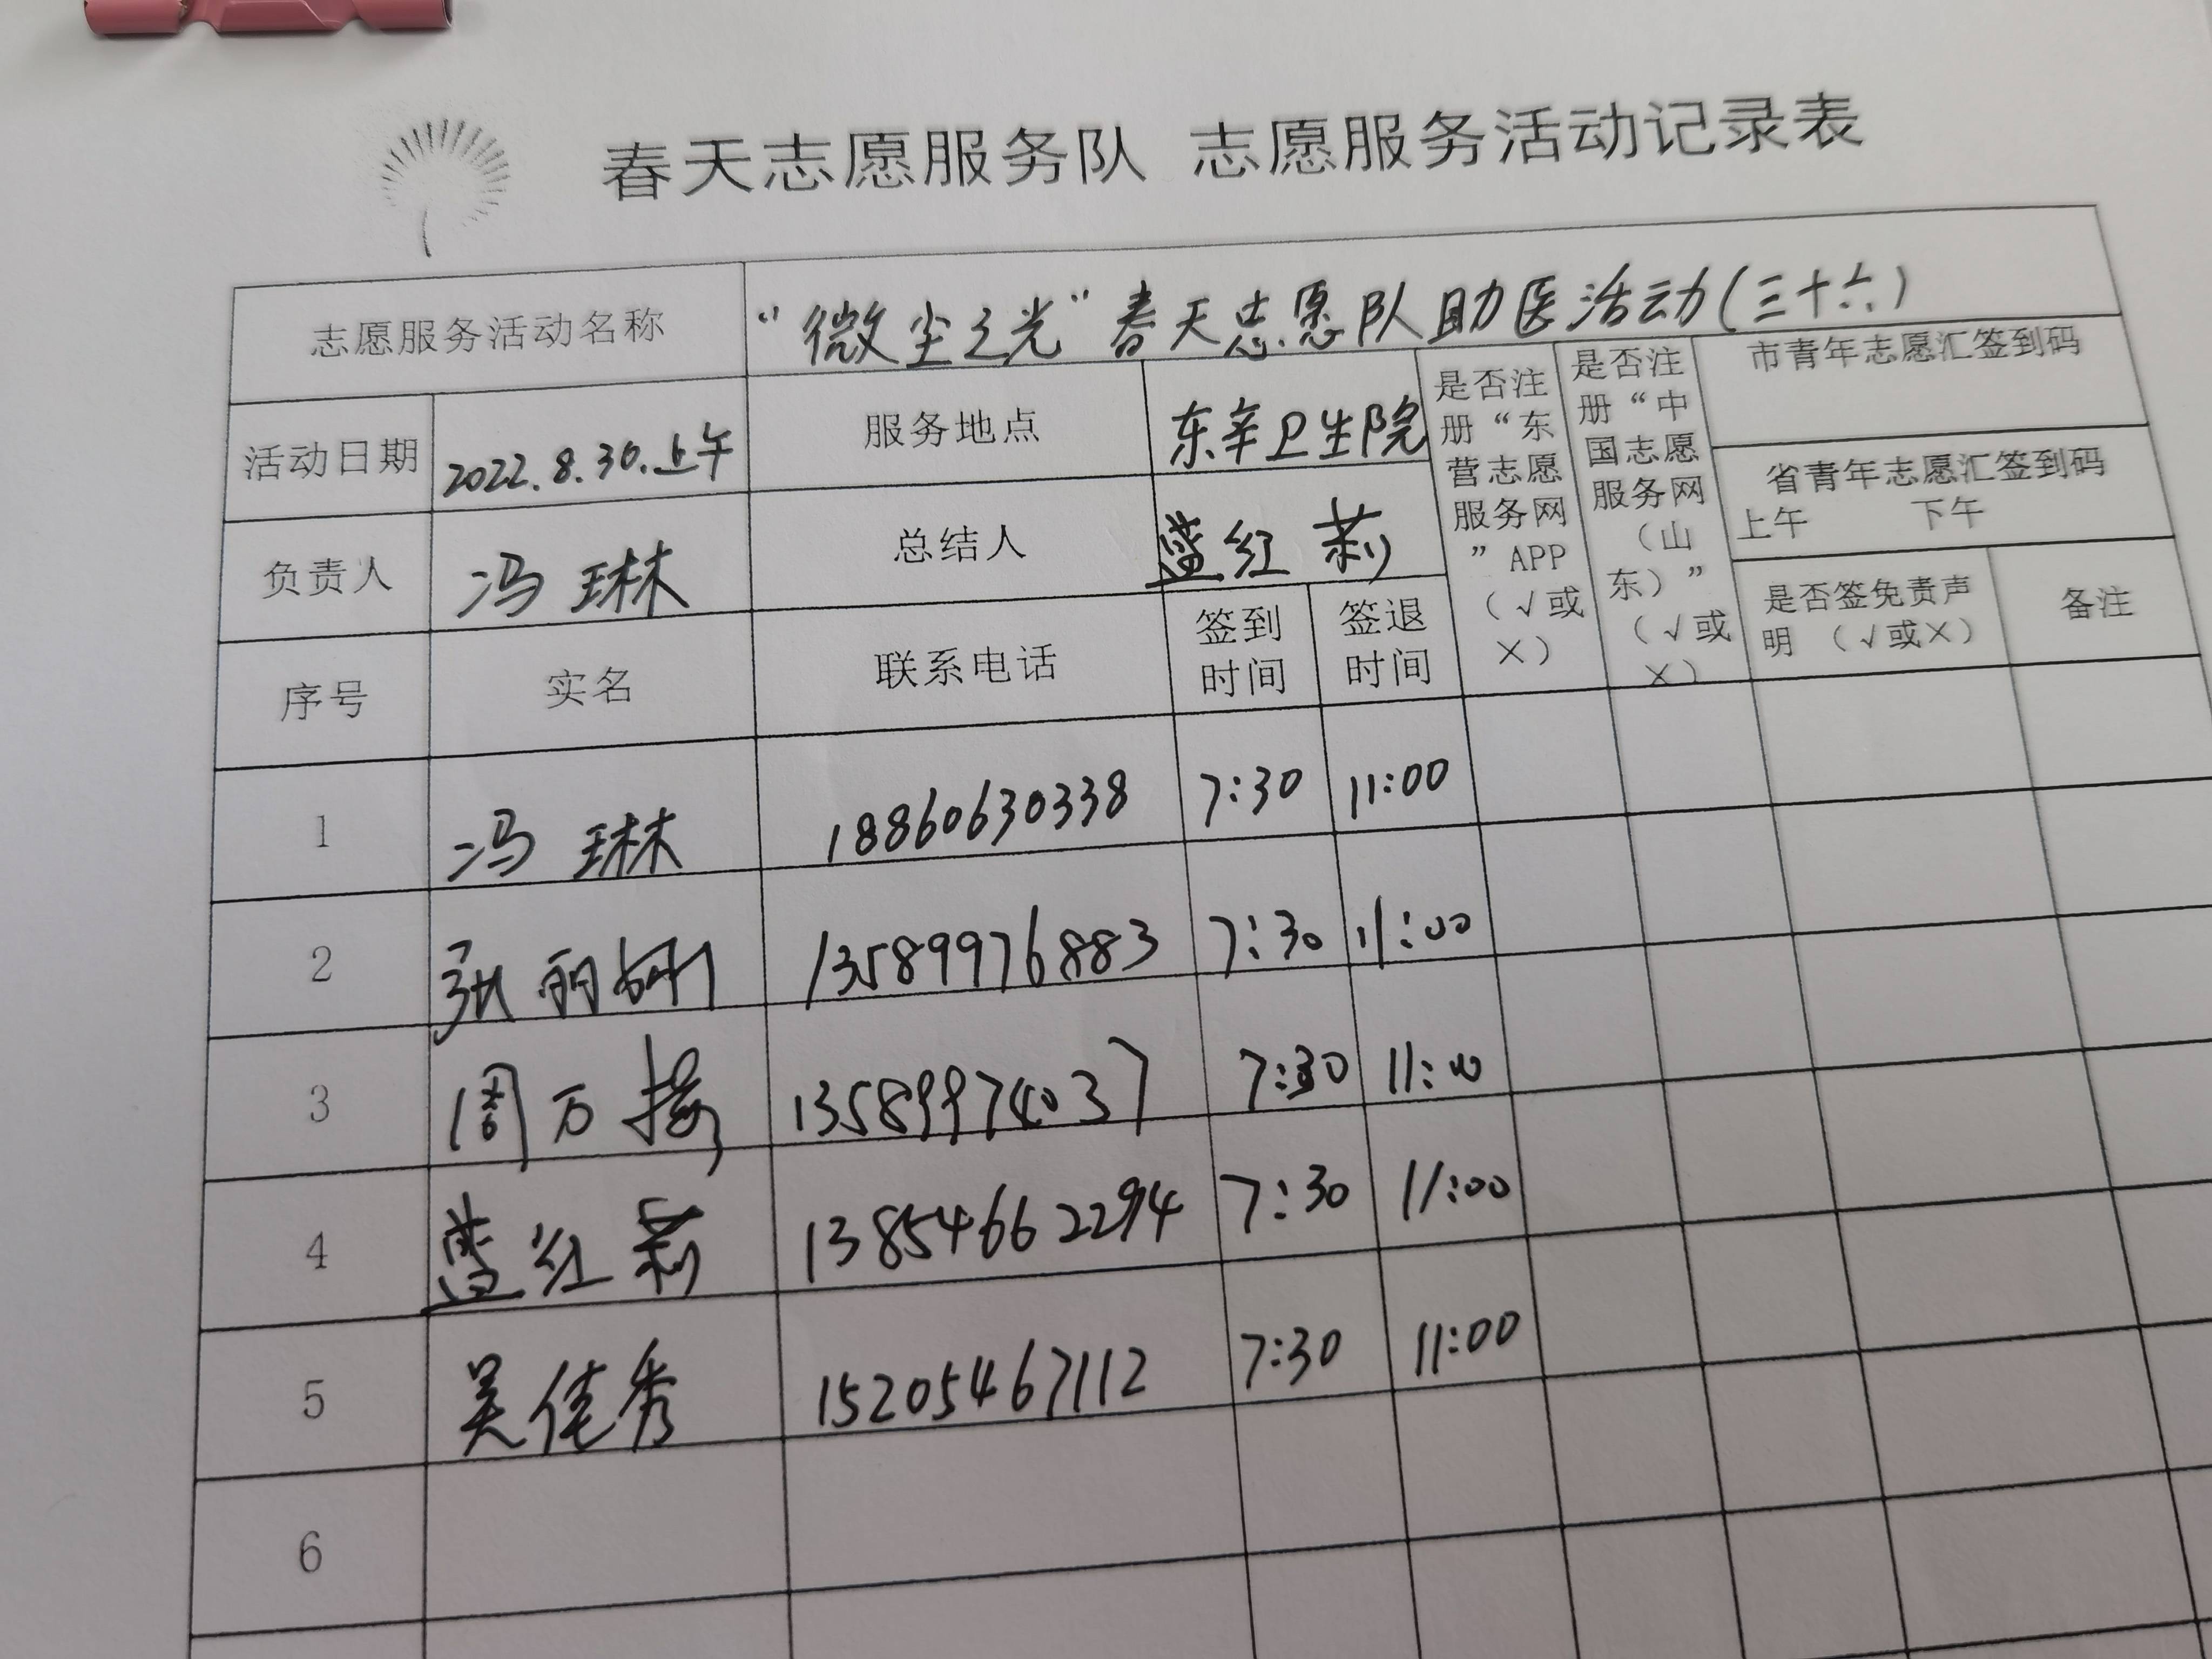 春天志愿服务队 志愿服务活动记录表
志愿服务活动名称 “微尘之光”春天志愿队助医活动(三十六)
活动日期 2022.8.30.上午 服务地点 东辛卫生院
是否注册“东营志愿服务网”APP（√或×）
是否注册“中国志愿服务网（山东）”（√或×）
市青年志愿汇签到码
省青年志愿汇签到码
上午 下午
负责人 冯琳 总结人 蓝红莉
是否签免责声明（√或×） 备注
序号 实名 联系电话 签到时间 签退时间
1 冯琳 18860630338 7:30 11:00
2 张丽娜 13589976883 7:30 11:00
3 周万 13589974037 7:30 11:00
4 蓝红莉 13854662294 7:30 11:00
5 吴佳秀 15205467112 7:30 11:00
6